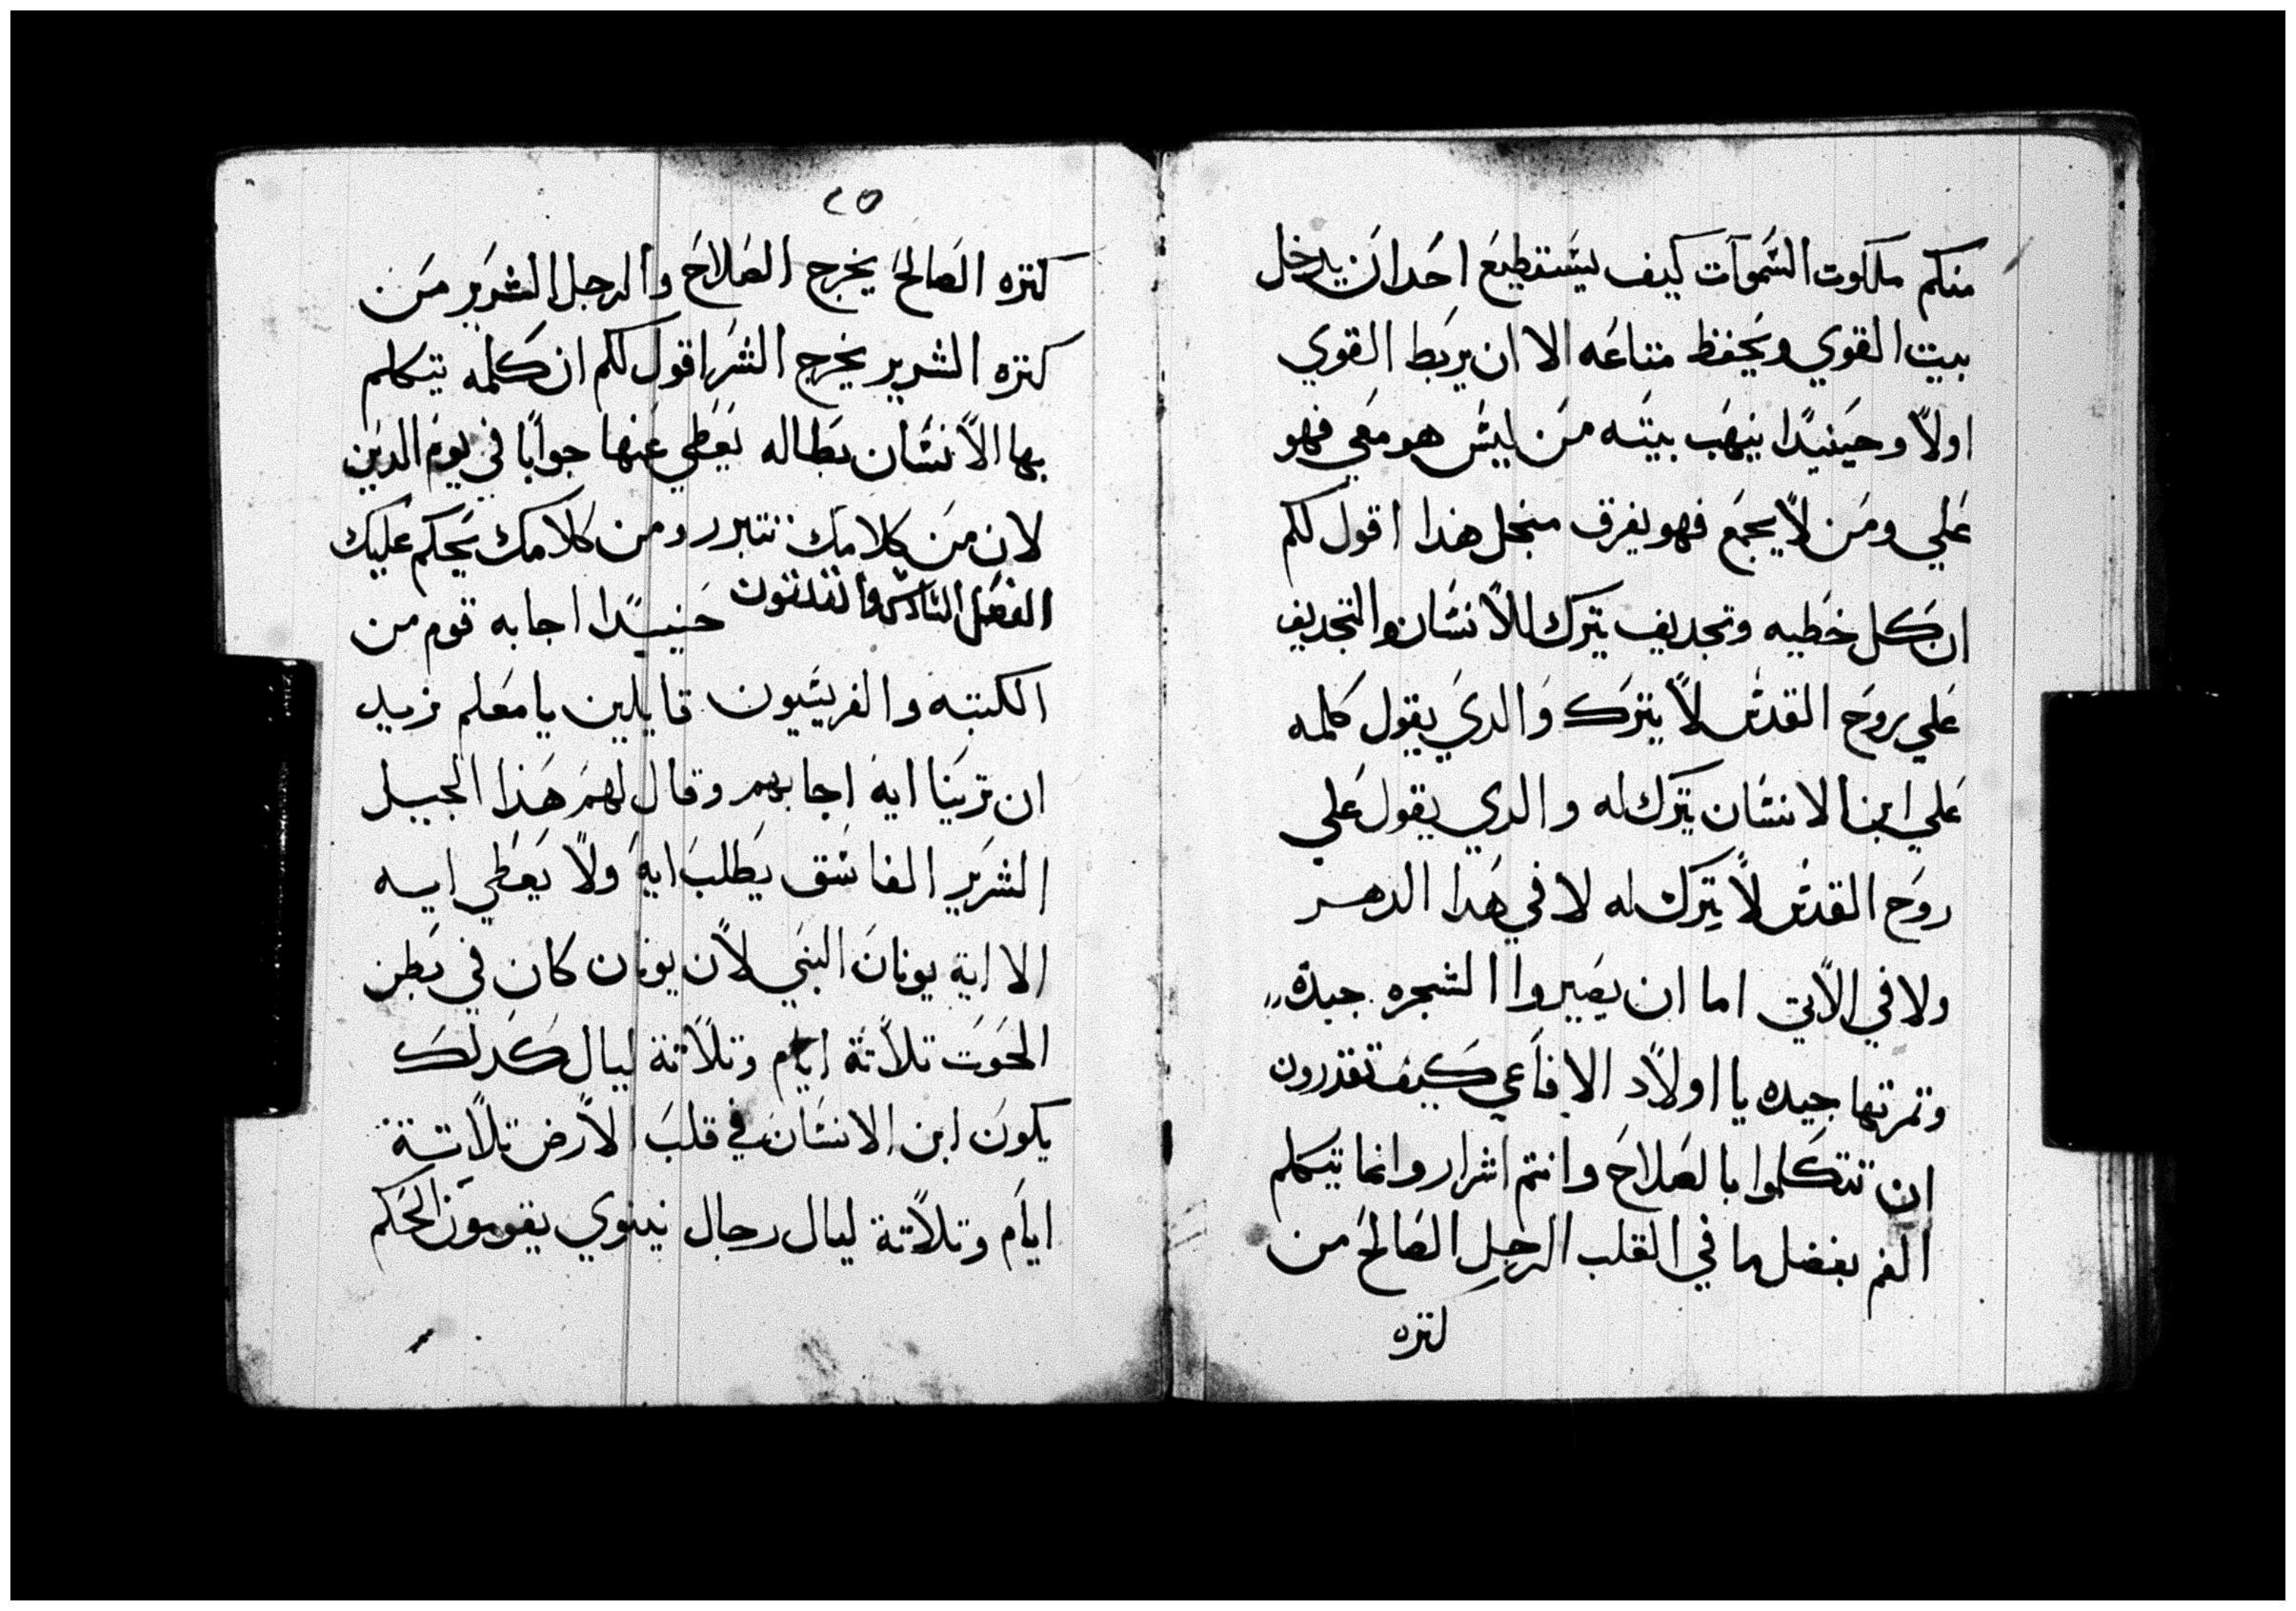 منكم ملكوت السموات كيف يستطيع احدان يدخل
بيت القوي ويحفظ متاعه الا ان يربط القوي
اولاً وحينيدًا ينهب بيته من ليس هو معي فهو
علي ومن لا يجمع فهو يفرق منجل هذا اقول لكم
ان كل خطيه وتجديف يترك للانسان والتجديف
علي روح القدس لا يترك والدي يقول كلمه
علي ابن الانسان يترك له والدي يقول علي
روح القدس لا يترك له لا في هدا الدهر
ولا في الاتي اما ان يصيروا الشجره جيده
وتمرتها جيده يا اولاد الافاعي كيف تقدرون
ان تتكلوا بالصلاح وانتم اشرار وانما يتكلم
الفم بفضل ما في القلب الرجل الصالح من
كنزه
٢٥
كنزه الصالح يخرج الصلاح والرجل الشرير من
كنزه الشرير يخرج الشر اقول لكم ان كلمه يتكلم
بها الانسان بطاله يعطي عنها جوابًا في يوم الدين
لان من كلامك تتبرر ومن كلامك يحكم عليك
الفصل السادس والتلتون حنيدًا اجابه قوم من
الكتبه والفريسيون قايلين يا معلم نريد
ان ترينا ايه اجابهم وقال لهم هذا الجيل
الشرير الفاسق يطلب اية ولا يعطي ايه
الا اية يونان النبي لان يونان كان في بطن
الحوت تلاتة ايام وتلاتة ليال كدلك
يكون ابن الانسان في قلب الارض تلاتة
ايام وتلاتة ليال رجال نينوي يقومون الحكم